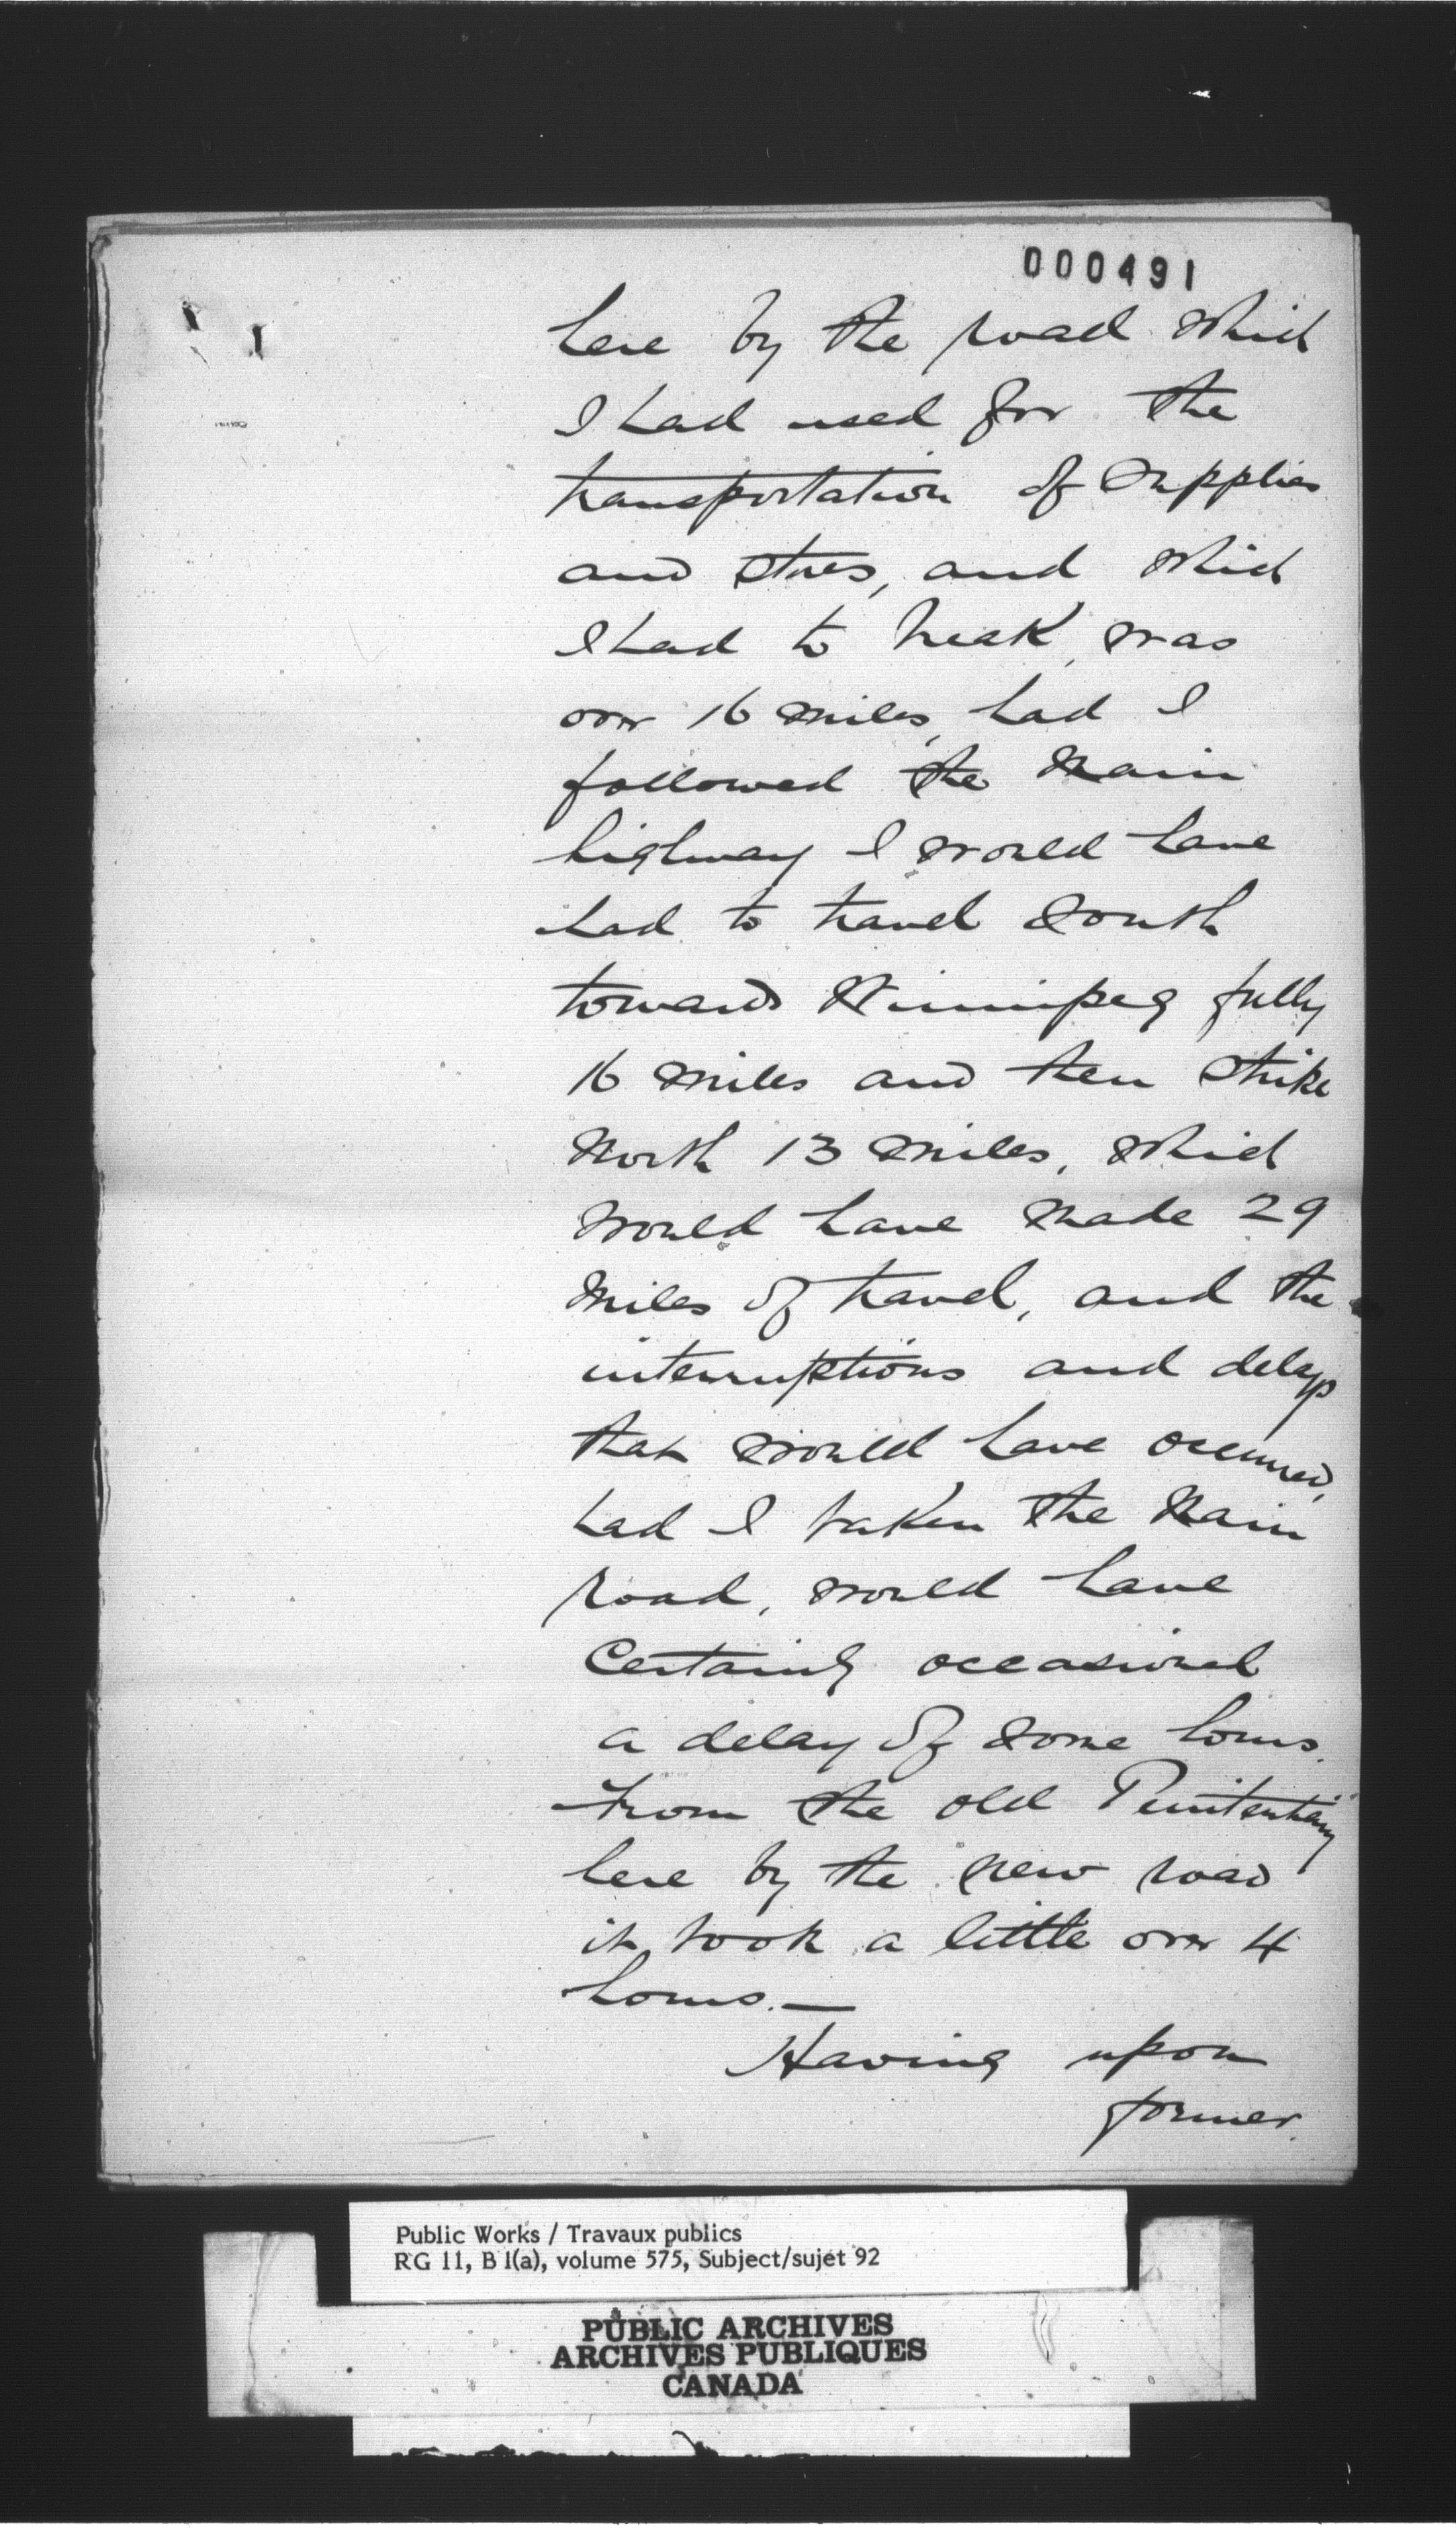 000491
here by the road which
I had used for the
transportation of supplies
and stores, and which
I had to break, was
over 16 miles, had I
followed the Main
highway I would have
had to travel South
towards Winnipeg fully
16 miles and then strike
North 13 miles, which
would have made 29
Miles of travel, and the
interruptions and delays
that would have occurred,
had I taken the Main
road, would have
Certainly occasioned
a delay of some hours.
From the old Penitentiary
here by the new road
it took a little over 4
hours. —
Having upon
former
Public Works / Travaux publics
RG 11, B 1(a), volume 575, Subject/sujet 92
PUBLIC ARCHIVES
ARCHIVES PUBLIQUES
CANADA